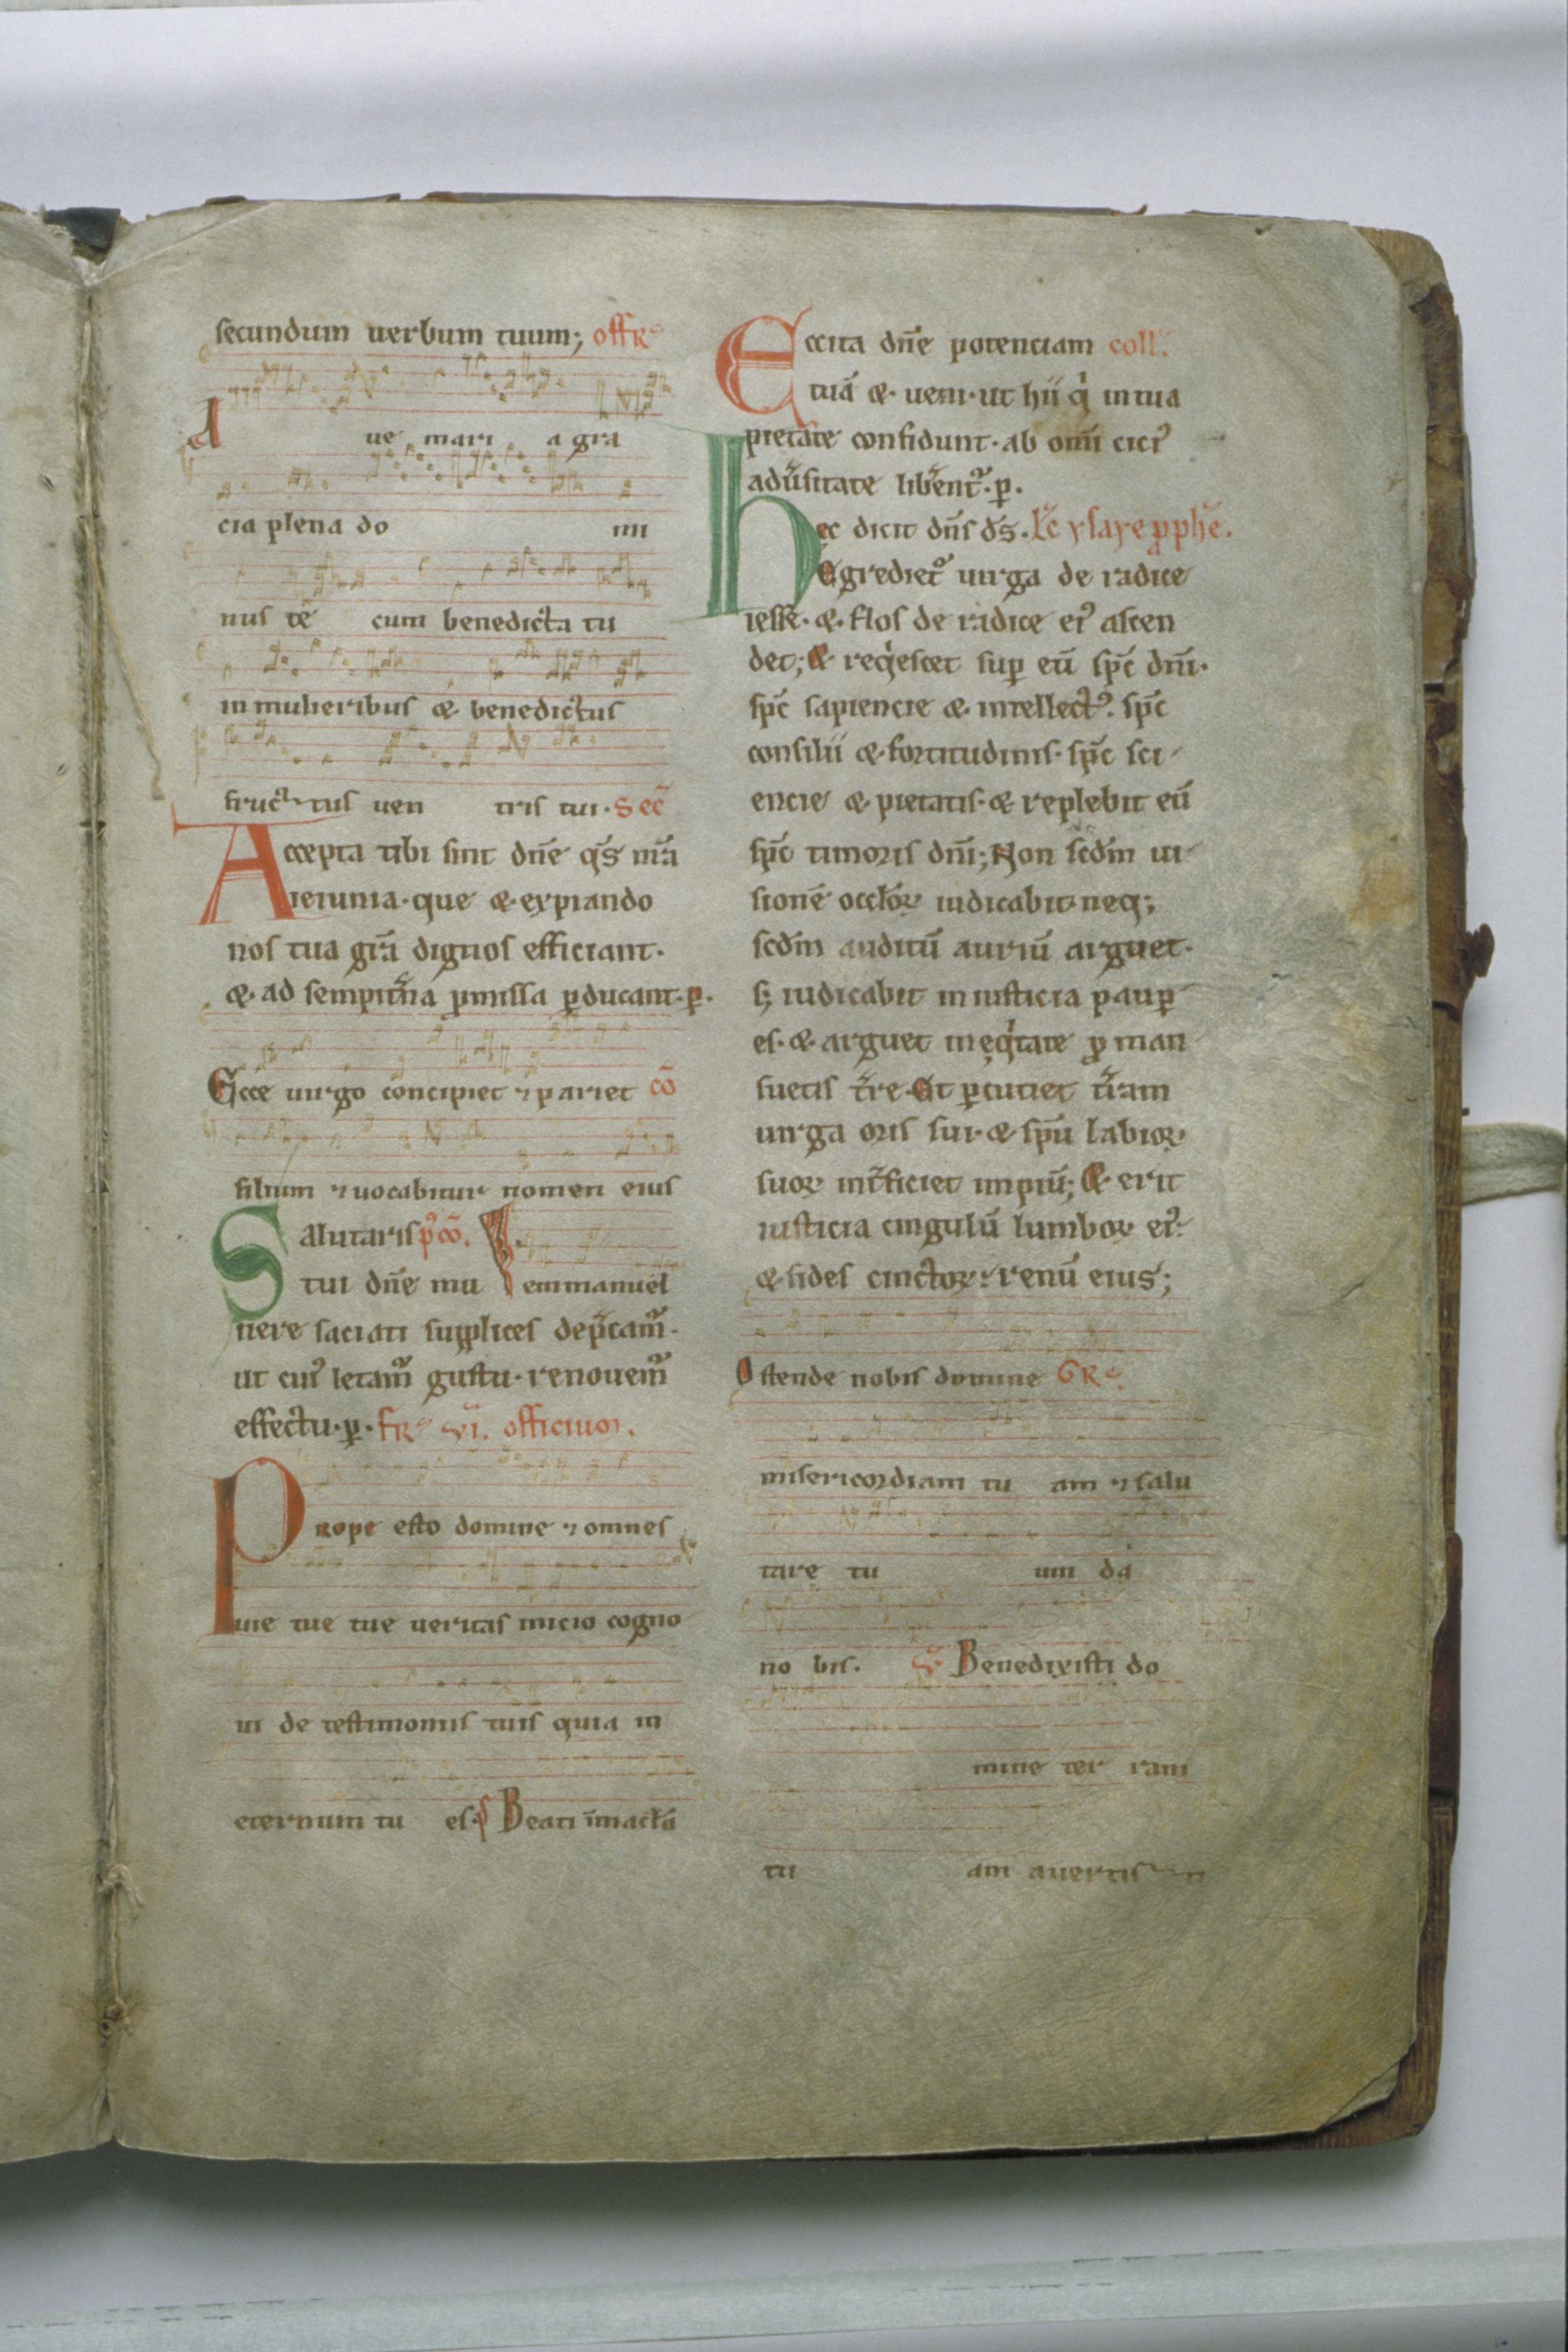 secundum uerbum tuum; offR̃
Aue mari a gra
cia plena do mi
nus te cum benedicta tu
in mulieribus & benedictus
fructus uen tris tui. Sec̃
Accepta tibi sint dn̄e q̄s nr̄a
ieiunia. que & expiando
nos tua gr̄a dignos efficiant.
& ad sempit̄na ꝓmissa ꝑducant. ꝑ.
Ecce uirgo concipiet ⁊ pariet cō
filium ⁊ uocabitur nomen eius
Salutaris p᷒cō.
tui dn̄e mu emmanuel
nere saciati supplices dep̄cam᷒.
ut cui᷒ letam᷒ gustu. renouem᷒
effectu. ꝑ. fR̃ vi. officium.
Prope esto domine ⁊ omnes
uie tue tue ueritas inicio cogno
ui de testimoniis tuis quia in
eternum tu es. p̄s Beati īmacl̄a
Excita dn̄e potenciam coll̃.
tuā & ueni. ut hii qⁱ in tua
pietate confidunt. ab om̄i cici᷒
adu̾sitate lib̾ent᷒. ꝑ.
Hec dicit dn̄s d̄s. Lc̄ ysaye ꝓph̄e.
Egrediet᷒ uirga de radice
iesse. & flos de radice ei᷒ ascen
det; & reqⁱescet suꝑ eū sp̄c dn̄i.
sp̄c sapiencie & intellect᷒. sp̄c
consilii & fortitudinis. sp̄c sci
encie & pietatis. & replebit eū
sp̄c timoris dn̄i; Non scd̄m ui
sionē occl̄oꝝ iudicabit. neq;
scd̄m auditū auriū arguet.
sꝫ iudicabit in iusticia pauꝑ
es. & arguet in eqⁱtate ꝓ man
suetis t̄re. Et ꝑcutiet t̄ram
uirga oris sui. & sp̄u labioꝝ
suoꝝ int̄ficiet impiū; & erit
iusticia cingulū lumboꝝ ei᷒.
& fides cinctoꝝ renū eius;
Ostende nobis domine GR̃.
misericordiam tu am ⁊ salu
tare tu um da
no bis. V̄ Benedixisti do
mine ter ram
tu am auertis